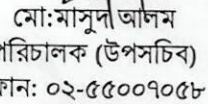 মো:মাসুদ আলম
পরিচালক (উপসচিব)
ফোন: ০২-৫৫০০৭০৫৮